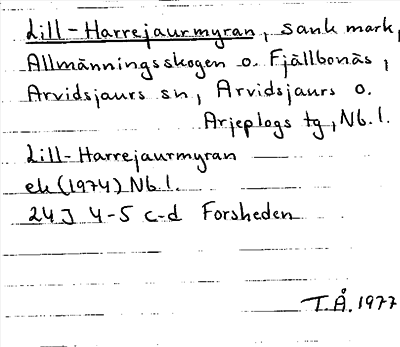 Lill-Harrejaurmyran, sank mark,
Allmänningsskogen o. Fjällbonäs,
Arvidsjaurs sn, Arvidsjaurs o.
Arjeplogs tg, Nb. l.
Lill-Harrejaurmyran
ek (1974) Nb l.
24J 4-5 c-d Forsheden
T.Å. 1977